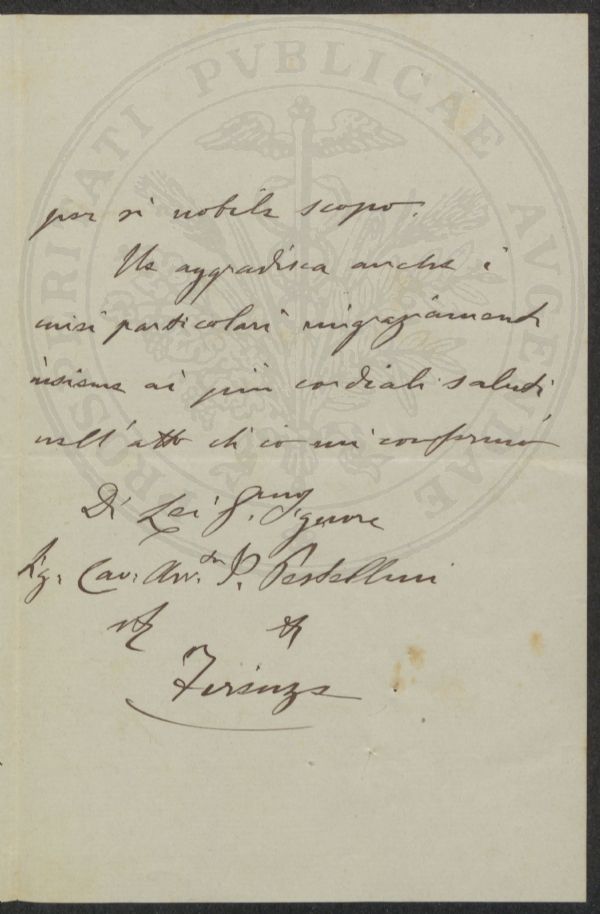 PROSPERITATI PVBLICAE AVGENDAE
per sì nobile scopo.
Ne aggradisca anche i
miei particolari ringraziamenti
insieme ai più cordiali saluti,
nell'atto ch'io mi confermo
Di Lei G. Signore
Sig. Cav. Avv. P. Pestellini
Firenze